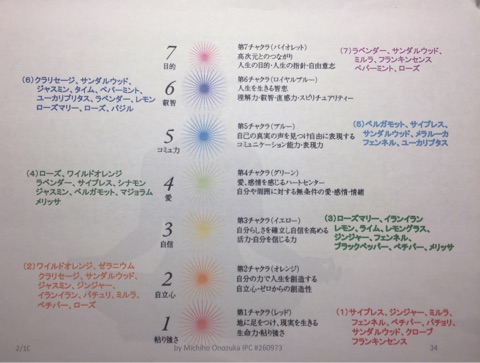 7
目的
第7チャクラ(バイオレット)
高次元とのつながり
人生の目的・人生の指針・自由意志
(7)ラベンダー、サンダルウッド、
ミルラ、フランキンセンス
ペパーミント、ローズ
(6)クラリセージ、サンダルウッド、
ジャスミン、タイム、ペパーミント、
ユーカリプリタス、ラベンダー、レモン
ローズマリー、ローズ、バジル
6
叡智
第6チャクラ(ロイヤルブルー)
人生を生きる智恵
理解力・叡智・直感力・スピリチュアリティー
5
コミュ力
第5チャクラ(ブルー)
自己の真実の声を見つけ自由に表現する
コミュニケーション能力・表現力
(5)ベルガモット、サイプレス、
サンダルウッド、メラルーカ
フェンネル、ユーカリプタス
(4)ローズ、ワイルドオレンジ
ラベンダー、サイプレス、シナモン
ジャスミン、ベルガモット、マジョラム
メリッサ
4
愛
第4チャクラ(グリーン)
愛、感情を感じるハートセンター
自分や周囲に対する無条件の愛・感情・情緒
3
自信
第3チャクラ(イエロー)
自分らしさを確立し自信を高める
活力・自分を信じる力
(3)ローズマリー、イランイラン
レモン、ライム、レモングラス、
ジンジャー、フェンネル、
ブラックペッパー、ベチバー、メリッサ
(2)ワイルドオレンジ、ゼラニウム
クラリセージ、サンダルウッド、
ジャスミン、ジンジャー、
イランイラン、パチュリ、ミルラ、
ベチバー、ローズ
2
自立心
第2チャクラ(オレンジ)
自分の力で人生を創造する
自立心・ゼロからの創造性
1
粘り強さ
第1チャクラ(レッド)
地に足をつけ、現実を生きる
生命力・粘り強さ
(1)サイプレス、ジンジャー、ミルラ、
フェンネル、ベチバー、パチョリ、
サンダルウッド、クローブ
フランキンセンス
by Michiho Onozuka IPC #260973
34